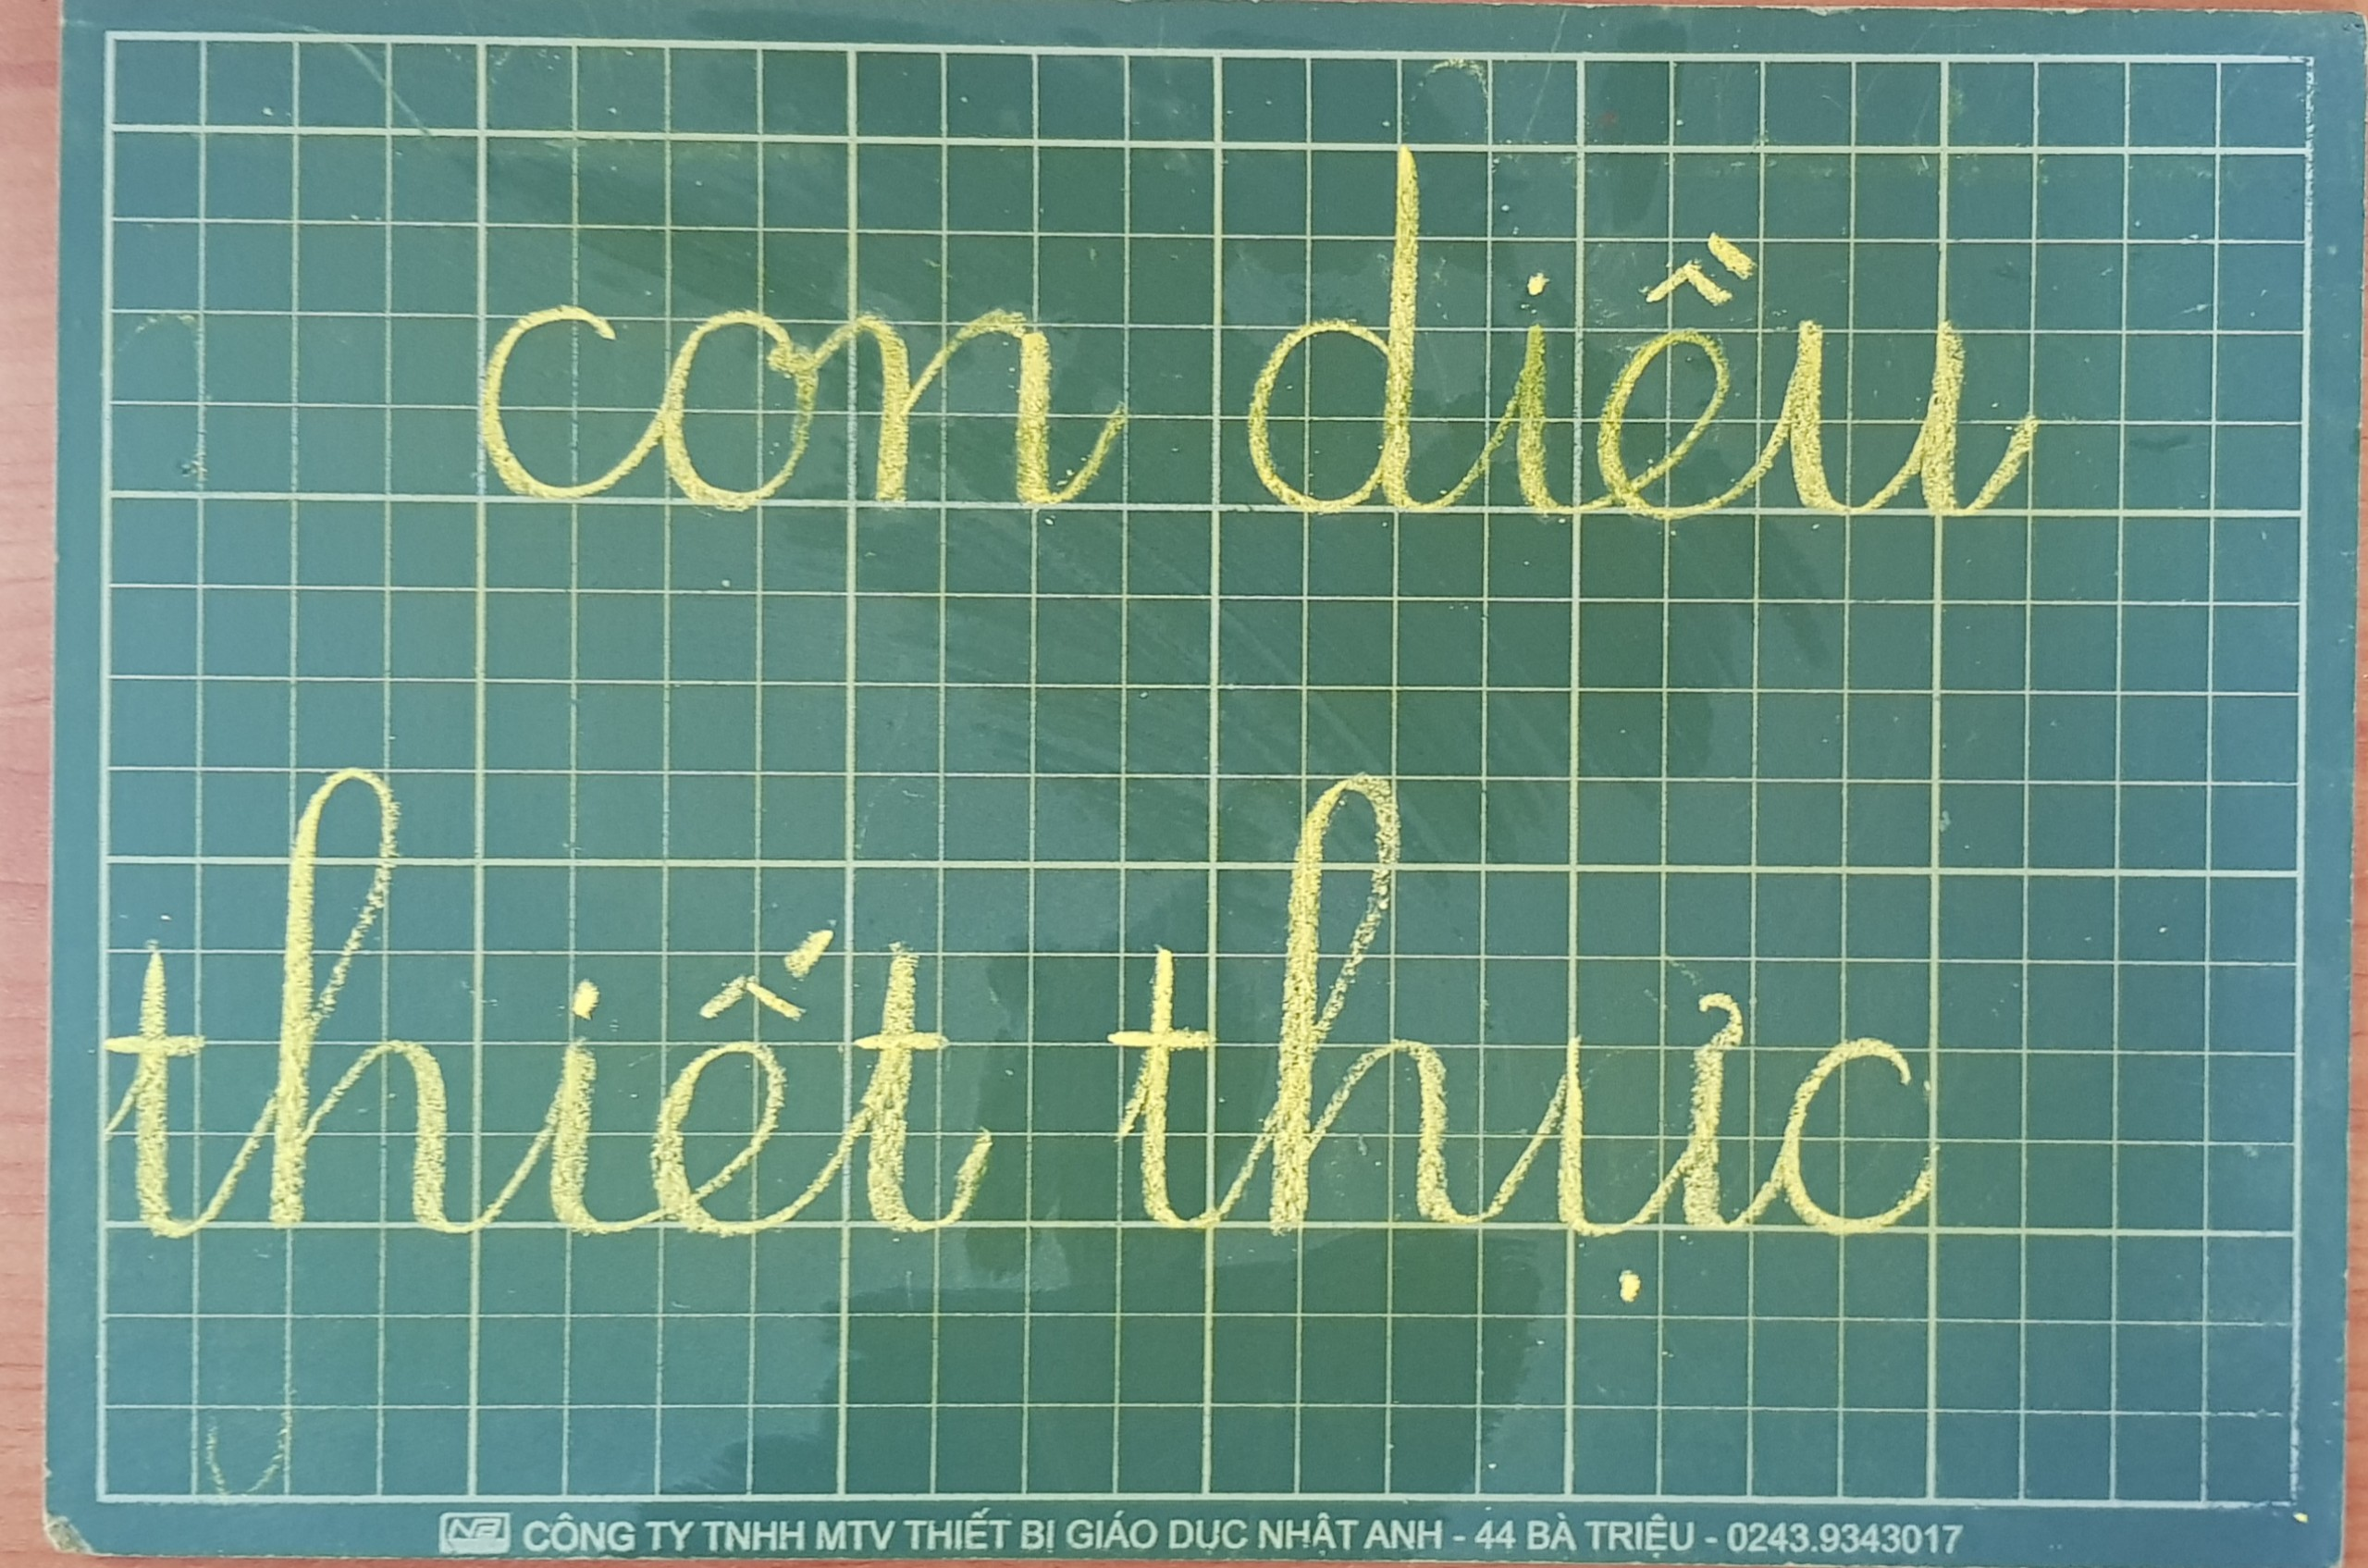 con diều
thiết thực
NA CÔNG TY TNHH MTV THIẾT BỊ GIÁO DỤC NHẬT ANH - 44 BÀ TRIỆU - 0243.9343017